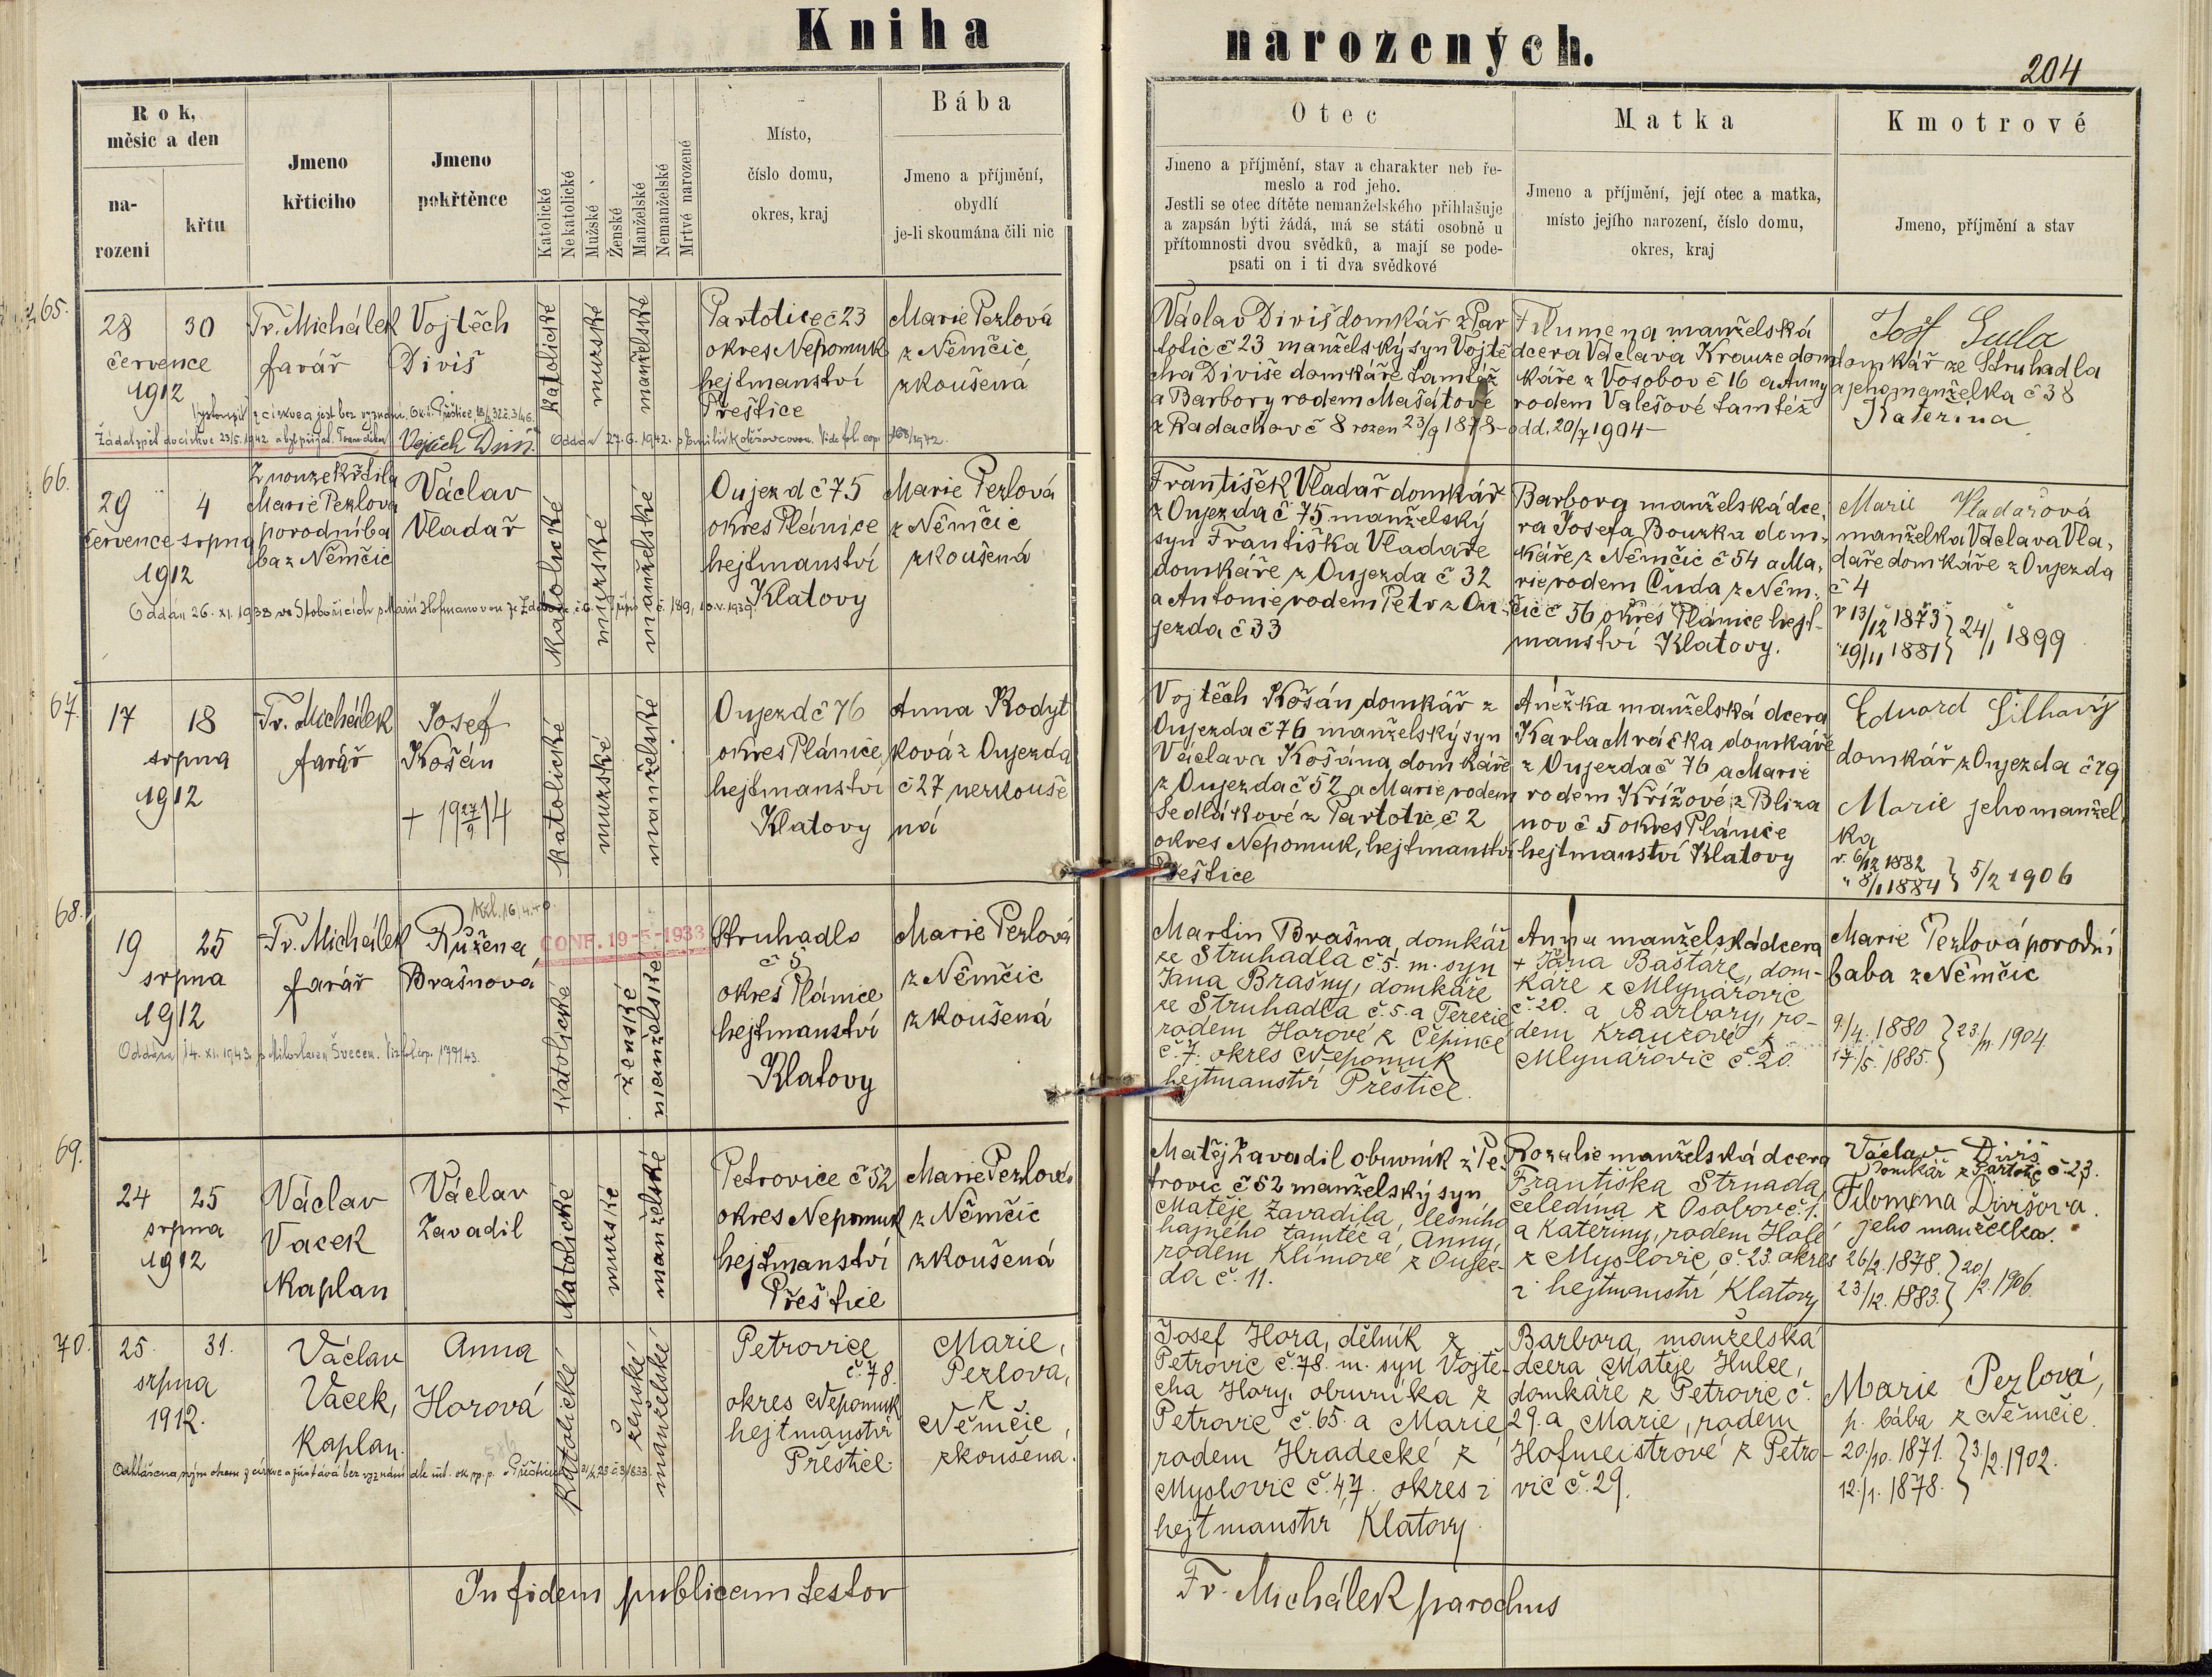 Kniha narozených.
204
Rok,
měsíc a den
na-
rozeni
křtu
Jmeno
křticího
Jmeno
pokřtěnce
Katolické
Nekatolické
Mužské
Ženské
Manželské
Nemanželské
Mrtvé narozené
Místo,
číslo domu,
okres, kraj
Bába
Jmeno a příjmění,
obydlí
je-li skoumána čili nic
Otec
Jmeno a příjmění, stav a charakter neb ře-
meslo a rod jeho.
Jestli se otec dítěte nemanželského přihlašuje
a zapsán býti žádá, má se státi osobně u
přítomnosti dvou svědků, a mají se pode-
psati on i ti dva svědkové
Matka
Jmeno a příjmění, její otec a matka,
místo jejího narození, číslo domu,
okres, kraj
Kmotrové
Jmeno, příjmění a stav
65.
28 30
července
1912
Fr. Michálek
farář
Vojtěch
Diviš
katolické
mužské
manželské
Partotice č 23
okres Nepomuk
hejtmanství
Přeštice
Marie Pezlová
z Němčic
zkoušená
Václav Diviš domkář z Par
totic č 23 manželský syn Vojtě
cha Diviše domkáře tamtéž
a Barbory rodem Mašátové
z Radachov č 8 rozen 23/9 1878
Filumena manželská
dcera Václava Krauze dom
káře z Vosobov č 16 a Anny
rodem Valešové tamtéž
odd. 20/7 1904
domkář ze Struhadla
a jeho manželka č 38
Kateřina
Vystoupil z církve a jest bez vyznání, Ok. ú. Přeštice
Žádal zpět do církve 23/5. 1942 a byl přijat.
Vojtěch Diviš
Oddán 27. 6. 1942.
66.
29 4
července srpna
1912
Z nouze křtila
Marie Pezlova
porodní ba
ba z Němčic
Václav
Vladař
katolické
mužské
manželské
Oujezd č 75
okres Plánice
hejtmanství
Klatovy
Marie Pezlová
z Němčic
zkoušená
František Vladař domkář
z Oujezda č 75 manželský
syn Františka Vladaře
domkáře z Oujezda č 32
a Antonie rodem Petr z Ou-
jezda č 33
Barbora manželská dce,
ra Josefa Bouzka dom-
káře z Němčic č 54 a Ma,
rie rodem Čuda z Něm-
čic č 56 okres Plánice hejt-
manství Klatovy.
Marie Vladařová
manželka Václava Vla,
daře domkáře z Oujezda
č 4
r 13/12 1873 } 24/1 1899
" 19/11 1881 }
Oddán 26. XI. 1938 ve Stobořicích s Marií Hofmanovou
67.
17 18
srpna
1912
Fr. Michálek
farář
Josef
Košán
+ 19 27/9 14
katolické
mužské
manželské
Oujezd č 76
okres Plánice
hejtmanství
Klatovy
Anna Rodyt
ková z Oujezda
č 27 nezkouše
ná
Vojtěch Košán domkář z
Oujezda č 76 manželský syn
Václava Košána domkáře
z Oujezda č 52 a Marie rodem
Sedlákové z Partotic č 2
okres Nepomuk, hejtmanství
Přeštice
Anežka manželská dcera
Karla Mráčka domkáře
z Oujezda č 76 a Marie
rodem Křížové z Bliza
nov č 5 okres Plánice
hejtmanství Klatovy
Eduard Šilhavý
domkář z Oujezda č 79
Marie jeho manžel-
ka
r. 6/12 1882 } 5/2 1906
" 8/1 1884 }
68.
19 25
srpna
1912
Fr. Michálek
farář
Růžena
Brašnová
CONF. 19-5-1933
katolické
ženské
manželské
Struhadlo
č 5
okres Plánice
hejtmanství
Klatovy
Marie Pezlová
z Němčic
zkoušená
Martin Brašna, domkář
ze Struhadla č. 5. m. syn
Jana Brašny, domkáře
ze Struhadla č. 5. a Terezie
rodem Horové z Čepince
č. 7. okres Nepomuk
hejtmanství Přeštice.
Anna manželská dcera
+ Jana Baštáře, dom-
káře z Mlynářovic
č. 20. a Barbory, ro-
dem Krauzové z
Mlynářovic č. 20.
Marie Pezlová porodní
baba z Němčic
9./4. 1880 } 23/11. 1904
17./5. 1885. }
Oddána 14. XI. 1943. s Miloslavem Švecem. Viz fol. cop. 179/43.
69.
24 25
srpna
1912
Václav
Vacek
kaplan
Václav
Zavadil
katolické
mužské
manželské
Petrovice č 52
okres Nepomuk
hejtmanství
Přeštice
Marie Pezlová
z Němčic
zkoušená
Matěj Zavadil obuvník z Pe-
trovic č 52 manželský syn
Matěje Zavadila, lesního
hajného tamtéž a Anny,
rodem Klímové z Oujez-
da č. 11.
Rozalie manželská dcera
Františka Strnada,
čeledína z Osobov č. 1.
a Kateřiny, rodem Holé
z Myslovic, č. 23. okres
i hejtmanství Klatovy
Václav Diviš
domkář z Partotic č 23.
Filomena Divišova.
jeho manželka.
26/2. 1878. } 20/2. 1906.
23./12. 1883. }
70.
25. 31.
srpna
1912.
Václav
Vacek,
kaplan.
Anna
Horová
katolické
ženské
manželské
Petrovice
č. 78.
okres Nepomuk
hejtmanství
Přeštice.
Marie,
Pezlova,
z
Němčic,
zkoušena.
Josef Hora, dělník z
Petrovic č. 78. m. syn Vojtě-
cha Hory, obuvníka z
Petrovic č. 65. a Marie
rodem Hradecké z
Myslovic č. 47. okres i
hejtmanství Klatovy.
Barbora, manželská
dcera Matěje Hulce,
domkáře z Petrovic č.
29. a Marie, rodem
Hofmeistrové z Petro-
vic č. 29.
Marie Pezlová,
p. bába z Němčic.
20./10. 1871. } 3/2. 1902.
12./1. 1878. }
Odhlášena svým otcem z církve a zůstává bez vyznání
In fidem publicam testor
Fr. Michálek parochus